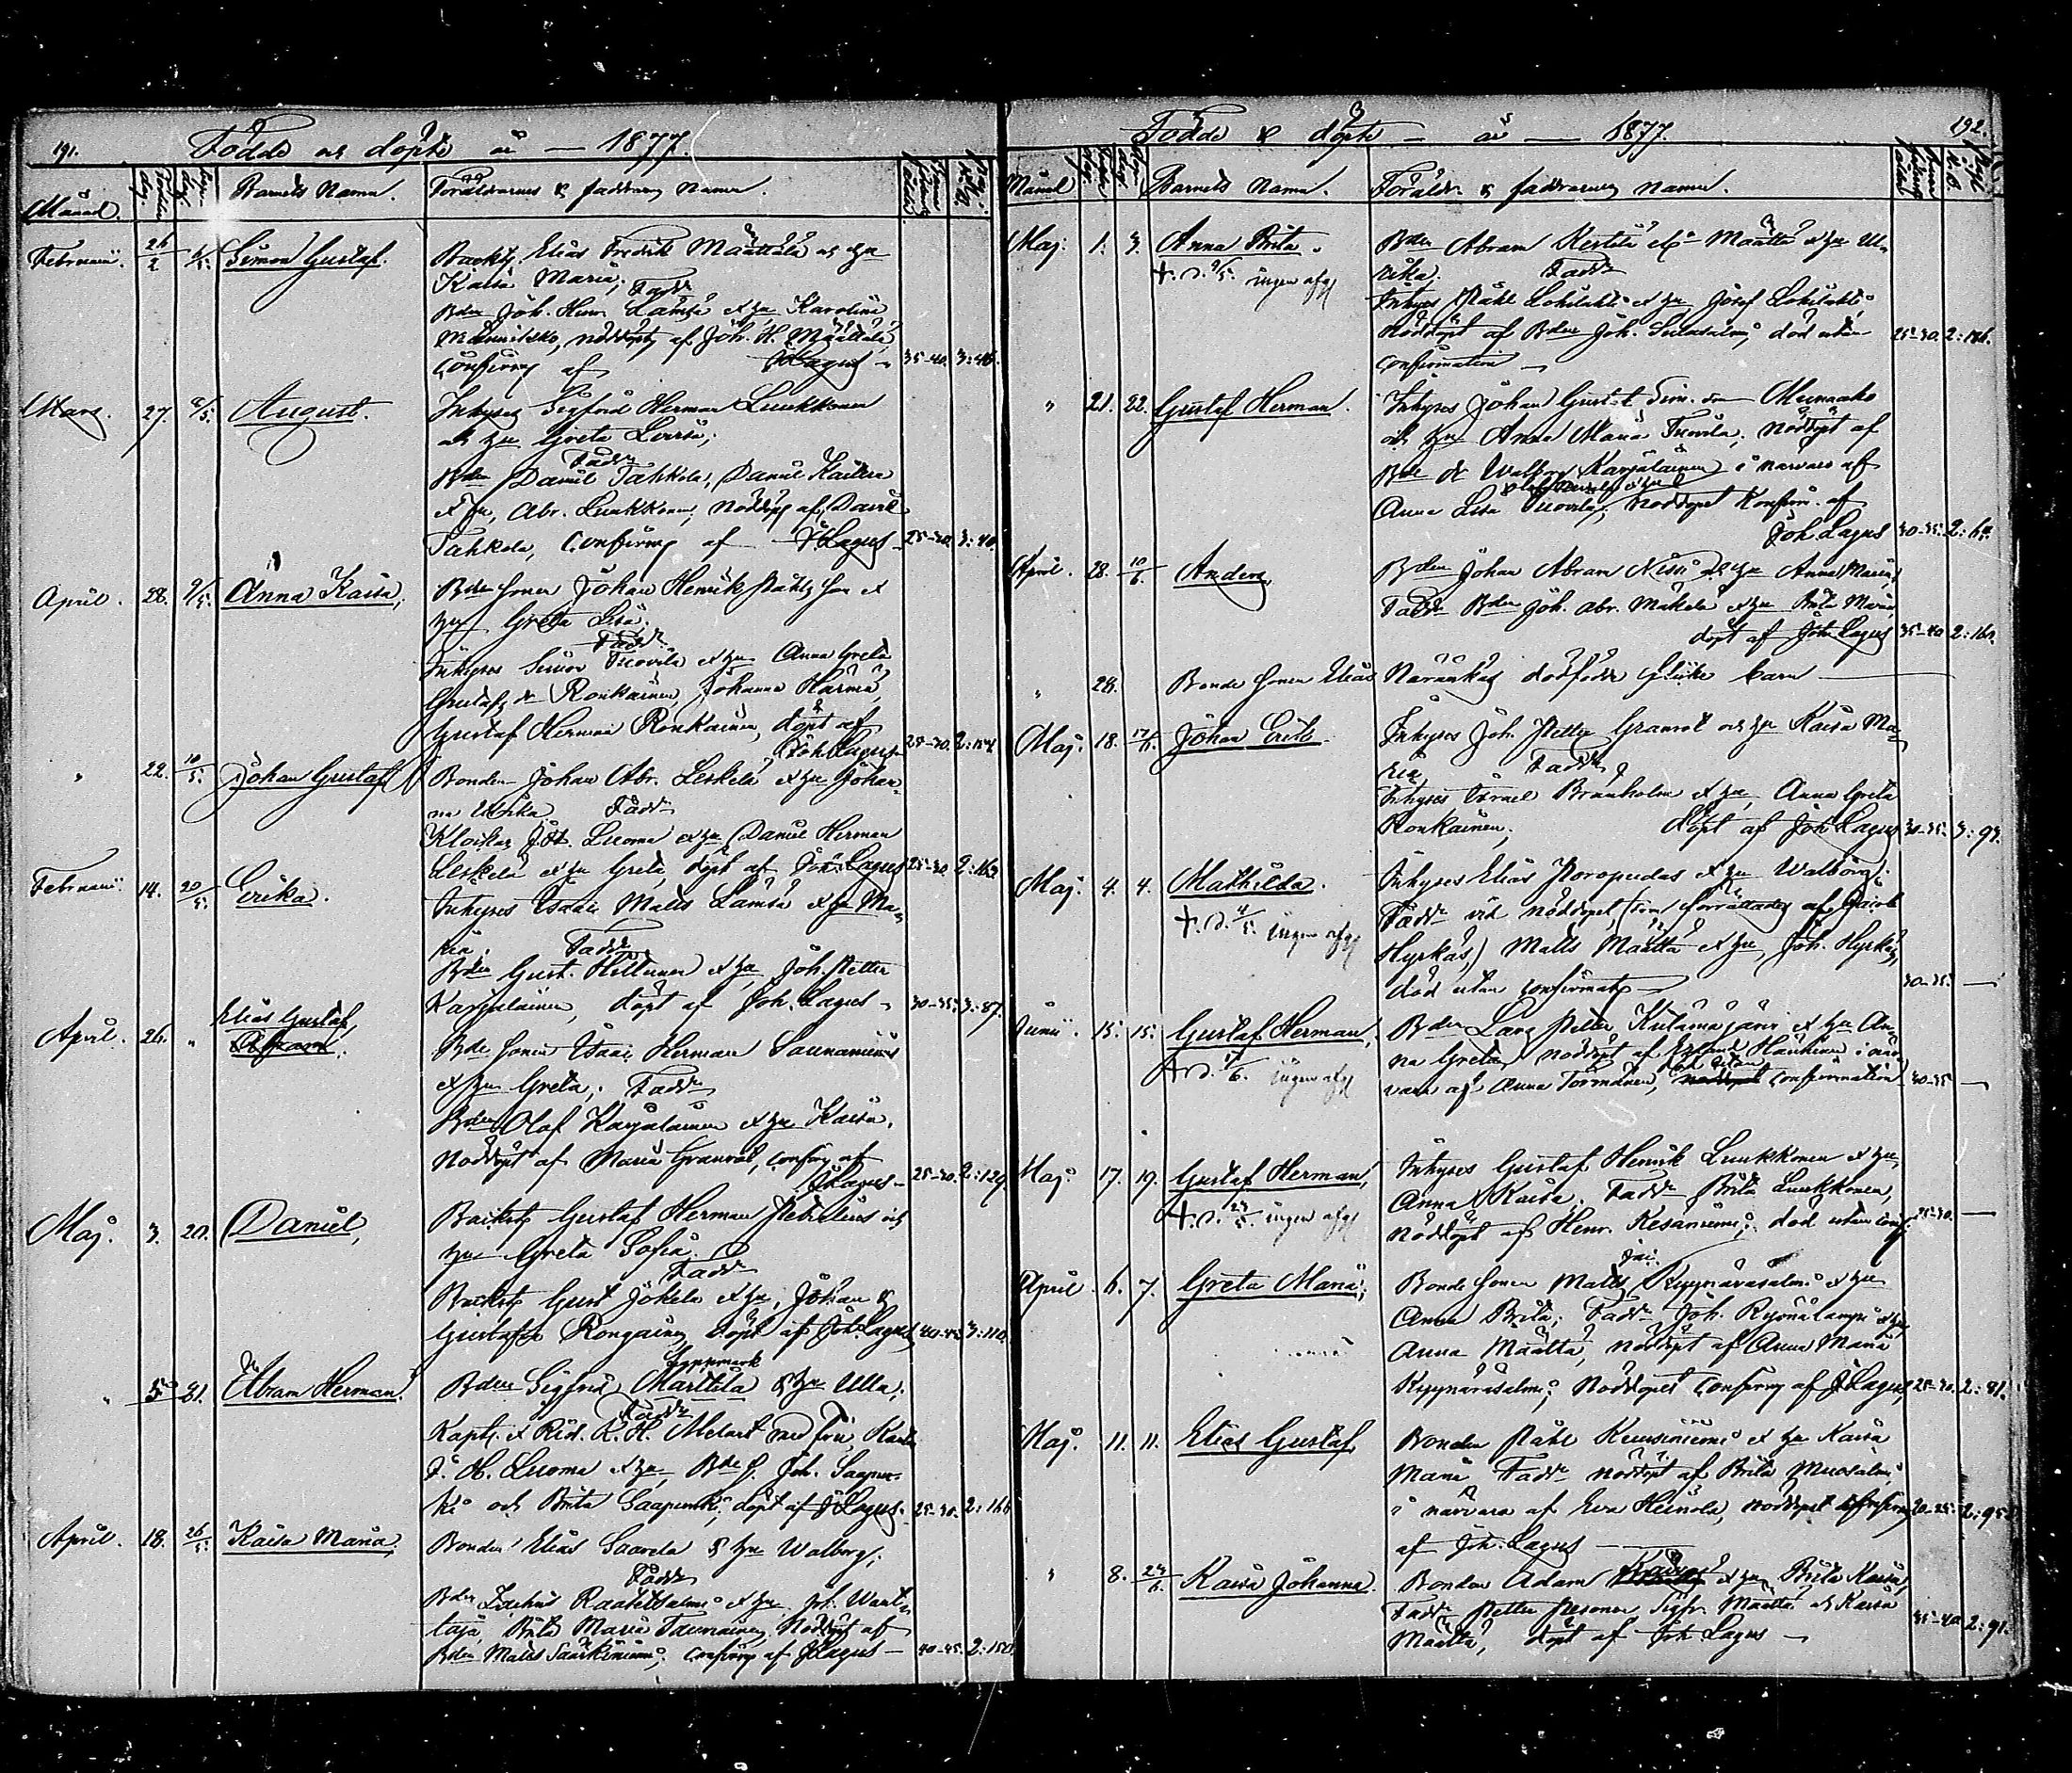 191.
Födde och döpte år — 1877.
Månad. Barnets Namn. Föräldrarnes & faddrarnes Namn.
Februarii. 26/2 6/5. Simon Gustaf. Backstg. Elias Fredrik Määttälä och hu
Kaisa Maria; Fadd
Bden Joh. Henr. Lämsä et hu Karolina
nöddöpt af Joh. H. Määttälä,
Confirm af JLagus 35-40. 3:46.
Mars. 27. 6/5. August. Inhyses Sigfrid Herman Luukkonen
och hu Greta Lovisa;
Fadd
Bden Daniel Tahkola, Daniel
et hu, Abr. Luukkonen, nöddöpt af Daniel
Tahkola, Confirm af JLagus 25-30. 3:40.
April. 28. 9/5. Anna Kaisa, Bde sonen Johan Henrik Påhls son et
hu Greta Lisa.
Fadd
Inhyses Simon Tuovila et hu Anna Greta
Gustafs dr Ronkainen, Johanna Härmä
Gustaf Herman Ronkainen, döpt af
Joh Lagus 25-30. 2:154
" 22. 10/5. Johan Gustaf Bonden Johan Abr. Leskelä et hu Johan-
na Ulrika Fadd
Klockar J. H. Luoma et hu Daniel Herman
Leskelä et hu Greta, döpt af Joh. Lagus 25-30 2:162
Februarii. 14. 20/5. Erika. Inhyses Isaac Matts Lämsä et hu Ma-
ria. Fadd
Bden Gust. Hiltunen et hu, Joh. Petter
Karjalainen, döpt af Joh. Lagus 30-35 3:87.
April. 26. " Elias Gustaf, Bde sonen Isaac Herman Saunaniemi
et hu Greta; Fadd
Bden Olof Karjalainen et hu Kaisa.
Nöddöpt af Maria Granrot, confirm af
JLagus 25-30. 2:129.
Maj. 3. 20. Daniel, Backstg Gustaf Herman Petrelius och
hu Greta Sofia.
Fadd
Backstg Gust Jokela et hu, Johan &
Gustafva Rongainen döpt af Joh Lagus 40-45 3:110.
" 5 21. Abram Herman. Bden Sigfrid Marttila & hu Ulla;
Fadd
Kapt. et Rid. K. H. Melart med fru, Kantor
J. H. Luoma et hu Bde s. Joh. Saapun-
ki och Brita Saapunki, döpt af JLagus. 25-30. 2:166
April. 18. 26/5. Kaisa Maria, Bonden Elias Saarela & hu Walborg;
Fadd
Bden Zachris Raatesalmi et hu Joh. Want-
taja, Brita Maria Taurainen, Nöddöpt af
Bden Matts Särkiniemi; Confirm af JLagus 40-45. 2:150.
Födde & döpte — år — 1877. 192.
Månad Barnets Namn. Föräldr & faddrarnes namn.
Maj. 1. 3. Anna Brita. Bden Abram Kestilä et Määttä et hu Ul-
rika. Fadd
†. d. 9/5. ingen afg Inhyses Påhl Lohilahti et hu, Josef Lohilahti
Nöddöpt af Bden Joh. Suvasalmi, död utan 25-30. 2:146.
Confirmation
" 21. 22. Gustaf Herman. Inhyses Johan Gustaf Sim. son
och hu Anna Maria Tuovila, Nöddöpt af
Bde dr Walborg Karjalainen i närvaro af
Anna Lisa Tuovila, Nöddopet Konfirm. af
Joh Lagus 30-35. 2:64.
April. 28. 10/6. Anders, Bden Johan Abram Nissi och hu Anna Maria,
Fadd Bden Joh. Abr. Mäkelä et hu Brita Maria,
döpt af Joh. Lagus 35-40 2:160.
" 28. Bonde sonen Elias Näränkäs dödfödde flicke barn
Maj. 18. 17/6. Johan Erik. Inhyses Joh. Petter Granrot och hu Kaisa Ma-
ria, Fadd
Inhyses Israel Brännholm et hu, Anna Greta
Ronkainen, döpt af Joh Lagus 30-35. 3:93.
Maj. 4. 4. Mathilda. Inhyses Elias Poropudas et hu Walborg.
Fadd vid nöddopet (som förrättades af Jacob
†. d. 4/5. ingen afg Hyrkäs,) Matts Määttä et hu, Joh. Hyrkäs,
död utan confirmat 30-35. —
Junii. 15. 15. Gustaf Herman, Bden Lars Petter Kitämäjärvi et hu An-
na Greta, nöddöpt af Hänninen i när-
† d. 17/6. ingen afg varo af Anna Törmänen, död utan confirmation 30-35 —
Maj. 17. 19. Gustaf Herman, Inhyses Gustaf Henrik Luukkonen et hu
Anna Kaisa. Fadd Brita Luukkonen,
†. d. 29/5. ingen afg nöddöpt af Henr. Kesäniemi; död utan Conf. 25-30. —
April 6. 7. Greta Maria; Bonde sonen Matts Kypnäräsalmi et hu
Anna Brita; Fadd Joh. et hu
Anna Määttä, nöddöpt af Anna Maria
Kypnäräsalmi; Nöddopet Confirm af JLagus, 25-30. 2:81.
Maj. 11. 11. Elias Gustaf, Bonden Påhl Kuusiniemi et hu Kaisa
Maria Fadd nöddöpt af Brita Muosalmi
i närvaro af Eva Heinola, nöddopet Confirm 20-25 2:95.
af Joh. Lagus
" 8. 24/6. Kaisa Johanna. Bonden Adam et hu Brita Kaisa,
Fadd Petter Pesonen, Sigfr. Määttä och Kaisa
Määttä, döpt af Joh Lagus 35-40 2:91.